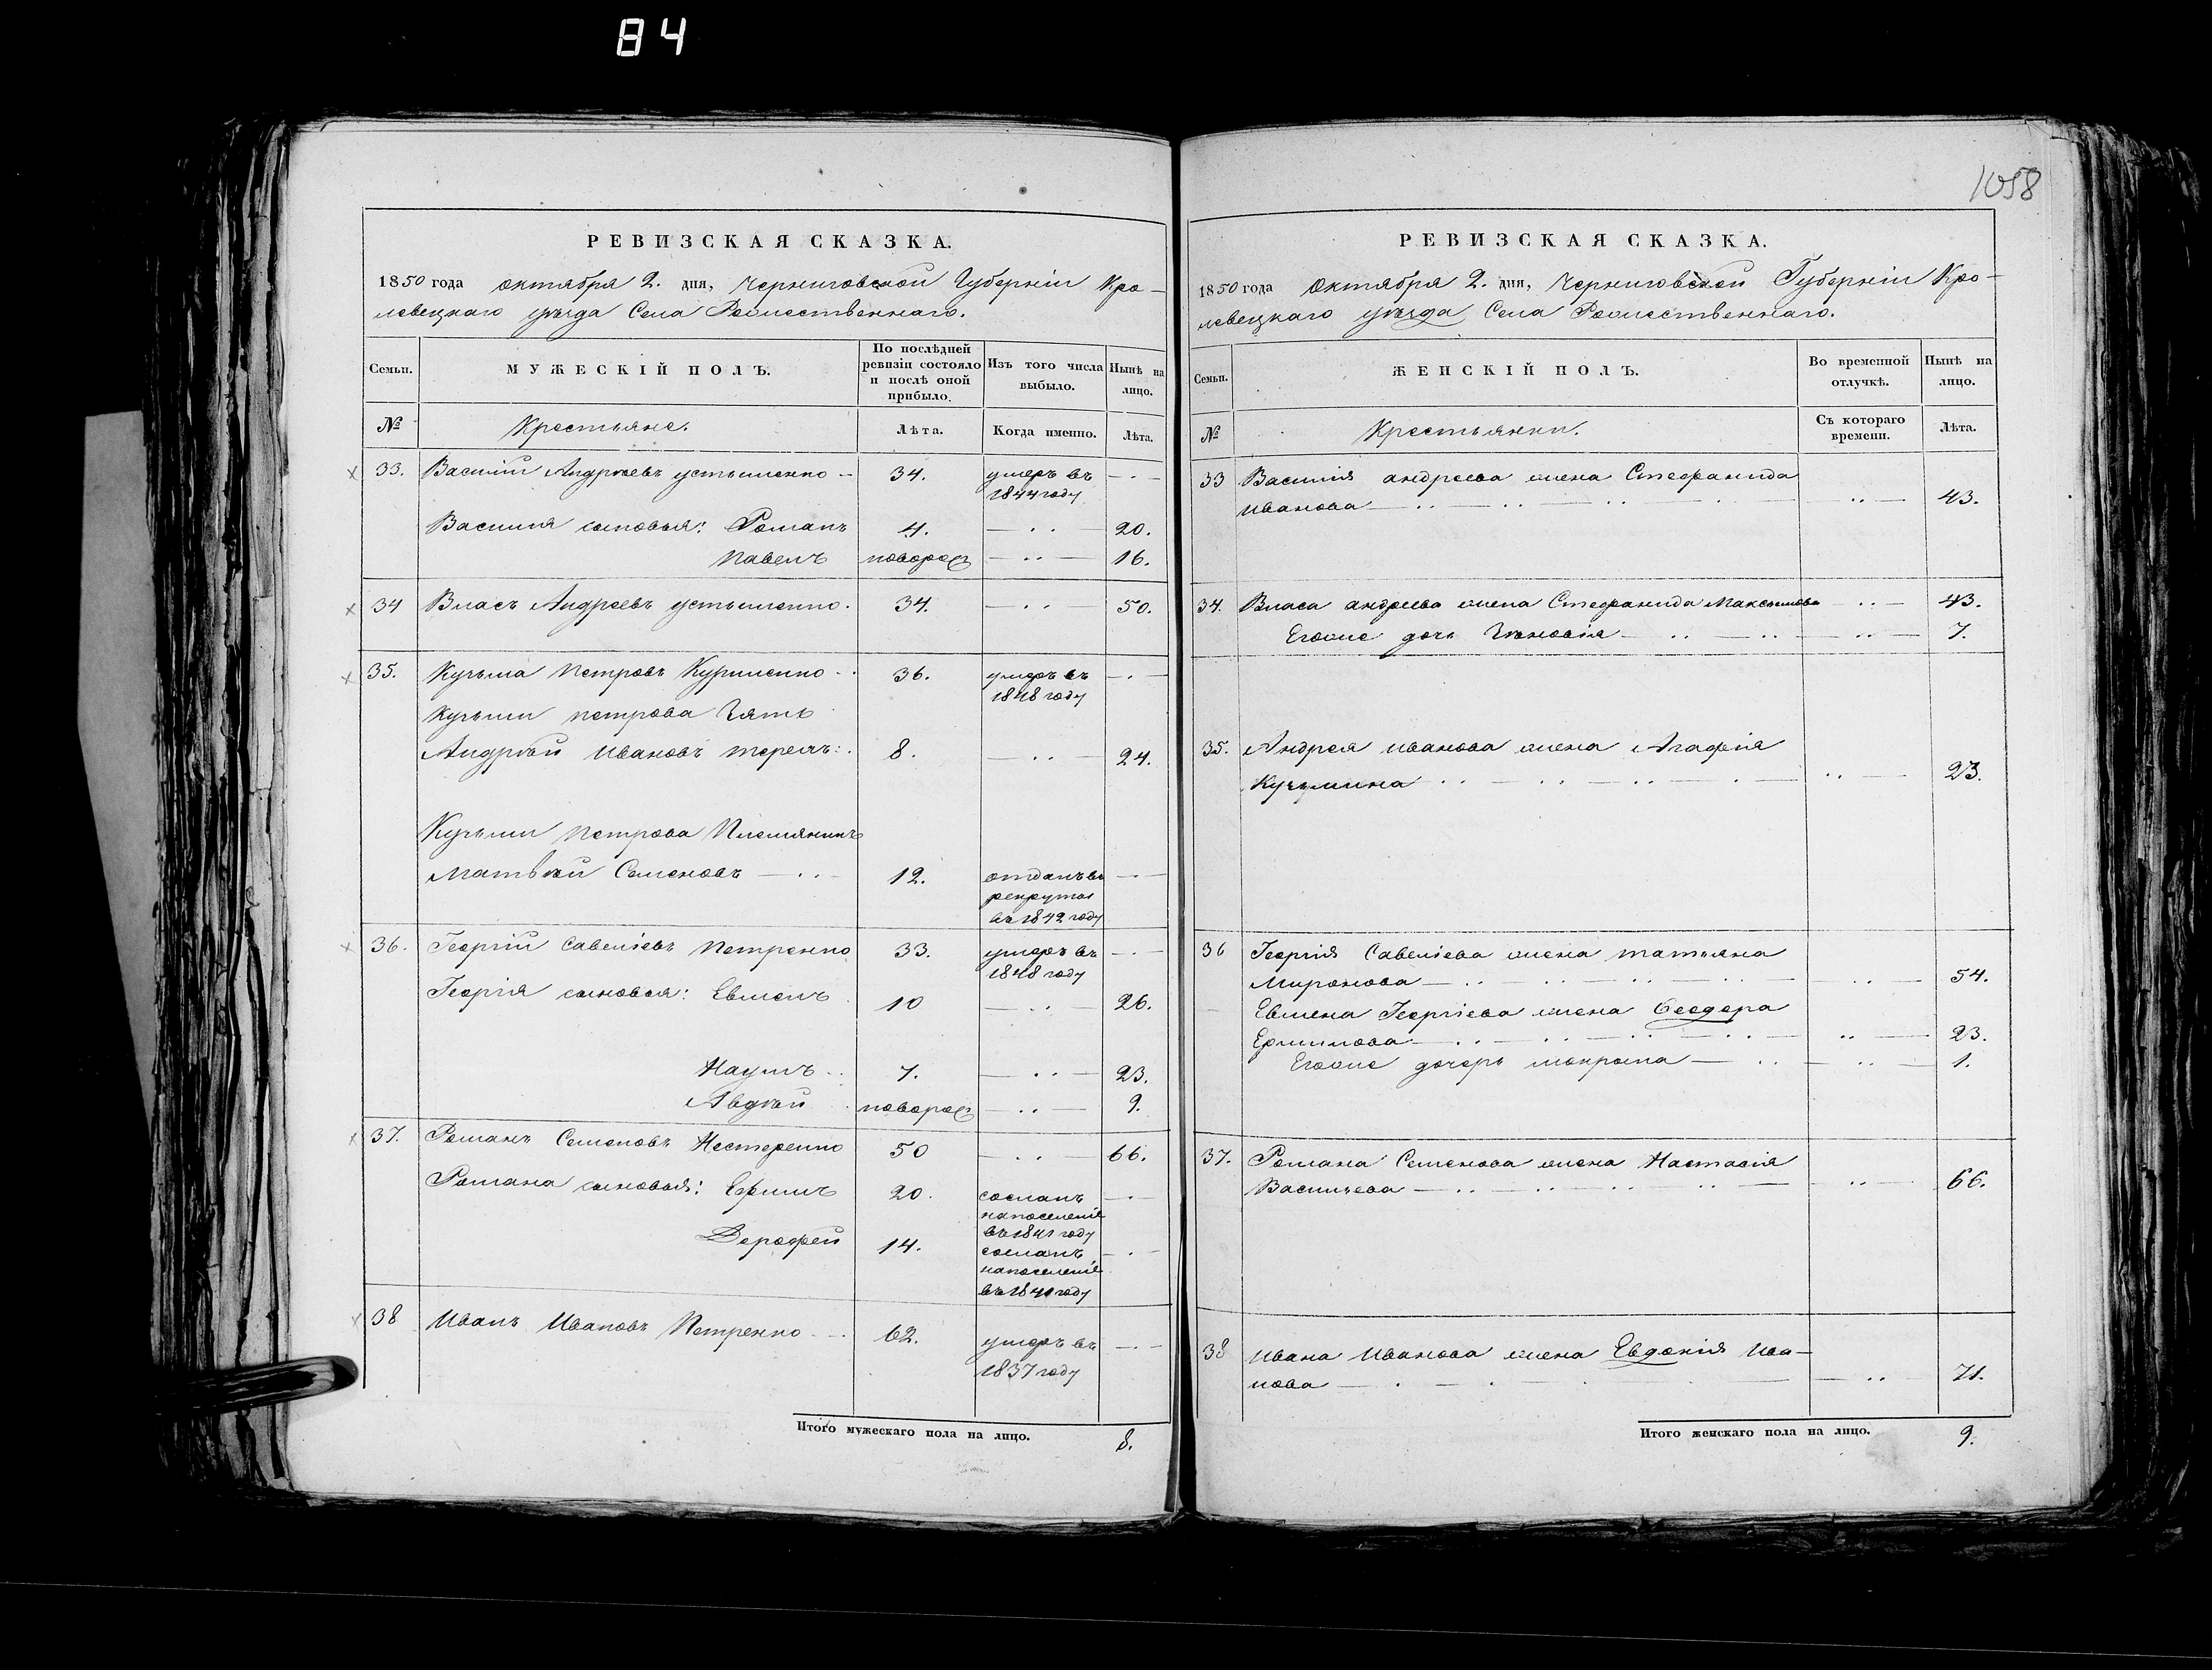 84
1058
РЕВИЗСКАЯ СКАЗКА.
1850 года октября 2. дня, Черниговской Губерніи Кро-
левецкаго уѣзда Села Рождественнаго.
Семьи.
МУЖЕСКІЙ ПОЛЪ.
По послѣдней ревизіи состояло и послѣ оной прибыло.
Изъ того числа выбыло.
Нынѣ на лицо.
№
Крестьяне.
Лѣта.
Когда именно.
Лѣта.
33. Василій Андреевъ 34. умеръ въ
1844 году
Василія сыновья: Романъ 4. 20.
Павелъ новорож 16.
34 Власъ Андреевъ 34. 50.
35. Кузьма Петровъ 36. умеръ въ
1848 году
Кузьмы петрова Зять
Андрей Ивановъ 8. 24.
Кузьмы Петрова Племянникъ
Матвѣй Семеновъ 12. отданъ въ
рекруты
въ 1842 году
36. Георгій Савеліевъ Петренко 33. умеръ въ
1848 году
Георгія сыновья: Евменъ 10 26.
Наумъ 7. 23.
Авдѣй новорож 9.
37. Романъ Семеновъ Нестеренко 50 66.
Романа сыновья: Ефимъ 20. сосланъ
на поселеніе
въ 1841 году
Дорофей 14. сосланъ
на поселеніе
въ 1841 году
38 Иванъ Ивановъ Петренко 62. умеръ въ
1837 году
Итого мужескаго пола на лицо. 8.
РЕВИЗСКАЯ СКАЗКА.
1850 года Октября 2. дня, Черниговской Губерніи Кро-
левецкаго уѣзда Села Рождественнаго.
Семьи.
ЖЕНСКІЙ ПОЛЪ.
Во временной отлучкѣ.
Нынѣ на лицо.
№
Крестьянки.
Съ котораго времени.
Лѣта.
33 Василія андреева жена Стефанида
Иванова 43.
34. Власа андреева жена Стефанида Максимова 43.
Егоже дочь Зиновія 7.
35. Андрея иванова жена Агафія
Кузьмина 23.
36 Георгія Савеліева жена татьяна
Миронова 54.
Евмена Георгіева жена Феодора
23.
Егоже дочерь 1.
37. Романа Семенова жена Настасія
Васильева 66.
38 Ивана Иванова жена Евдокія Ива-
нова 71.
Итого женскаго пола на лицо. 9.